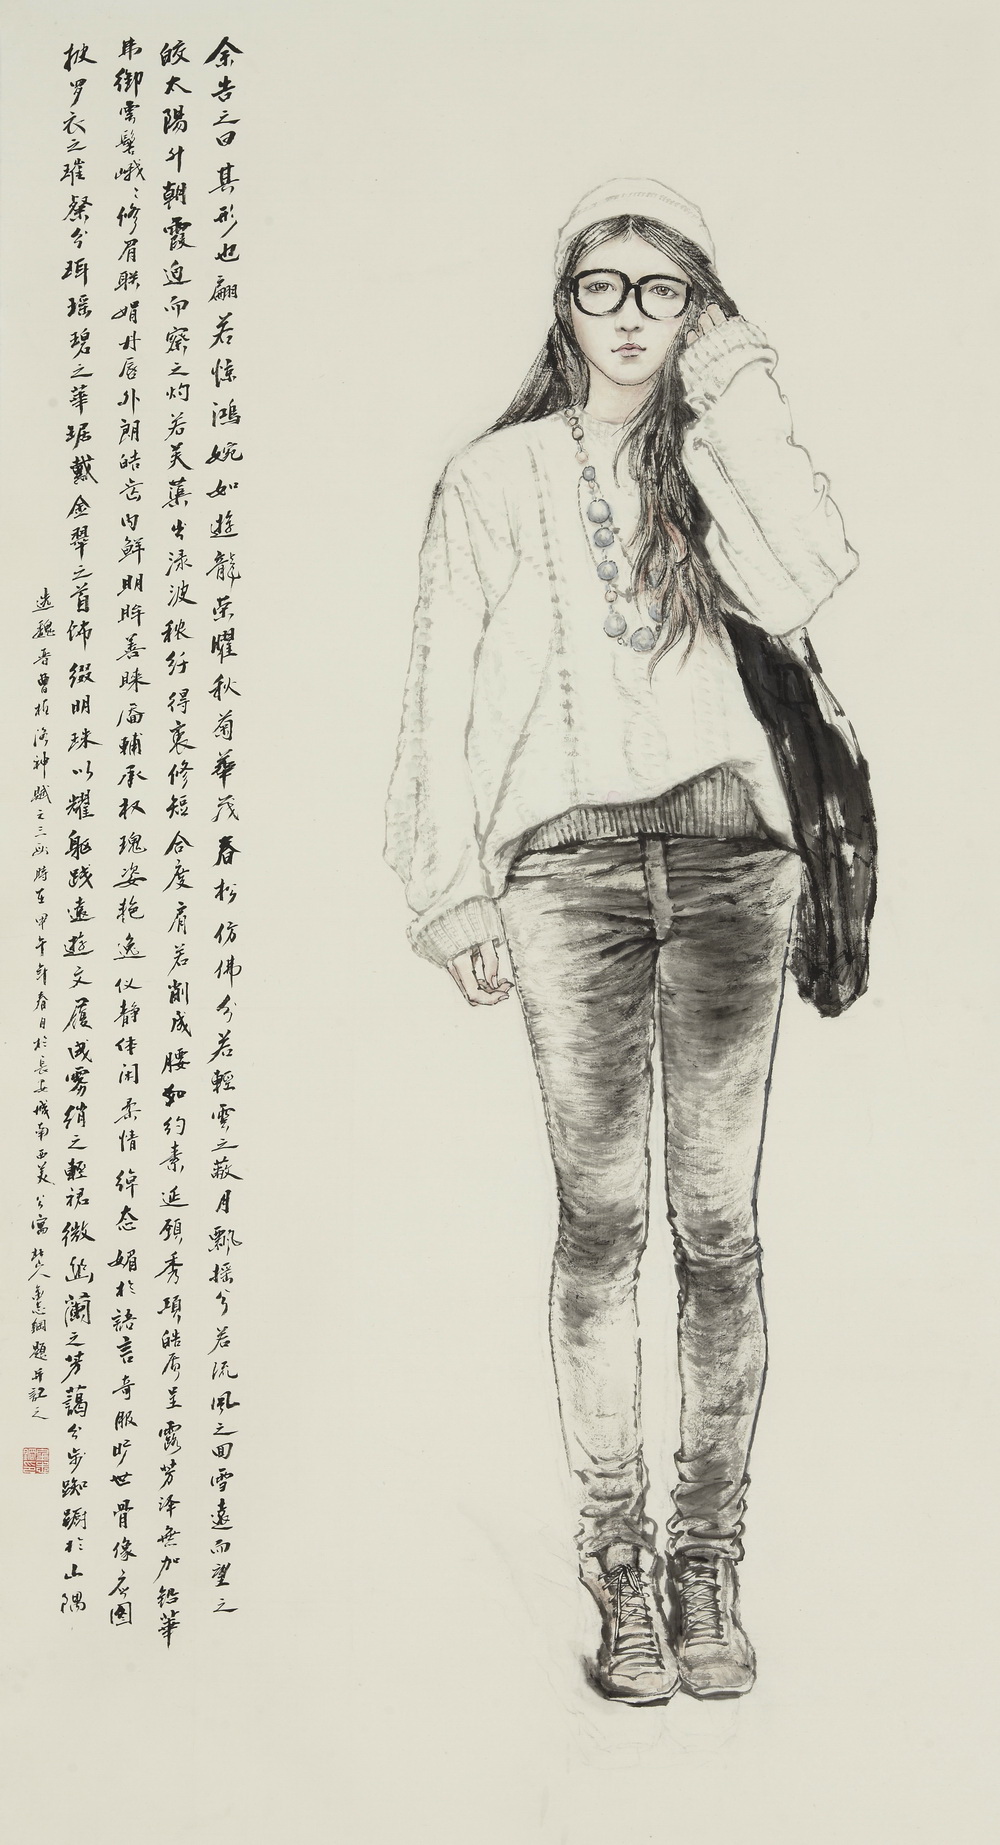 余告之曰其形也翩若惊鴻婉如遊龍栄曜秋菊華茂春松仿佛兮若輕雲之蔽月飄摇兮若流風之回雪遠而望之
皎太陽升朝霞迫而察之灼若芙蕖出渌波秾纤得衷修短合度肩若削成腰如约素延颈秀项皓质呈露芳泽無加铅華
弗御雲髻峨峨修眉联娟丹唇外朗皓齿内鮮明眸善睐靥辅承权瑰姿艳逸仪静体闲柔情绰态媚於語言奇服旷世骨像应图
披罗衣之璀粲兮珥瑶碧之華琚戴金翠之首饰缀明珠以耀躯践遠遊之文履曳雾绡之輕裾微幽蘭之芳藹兮步踟蹰於山隅
选魏晋曹植洛神赋之三段時在甲午年春月於長安城南西美公寓